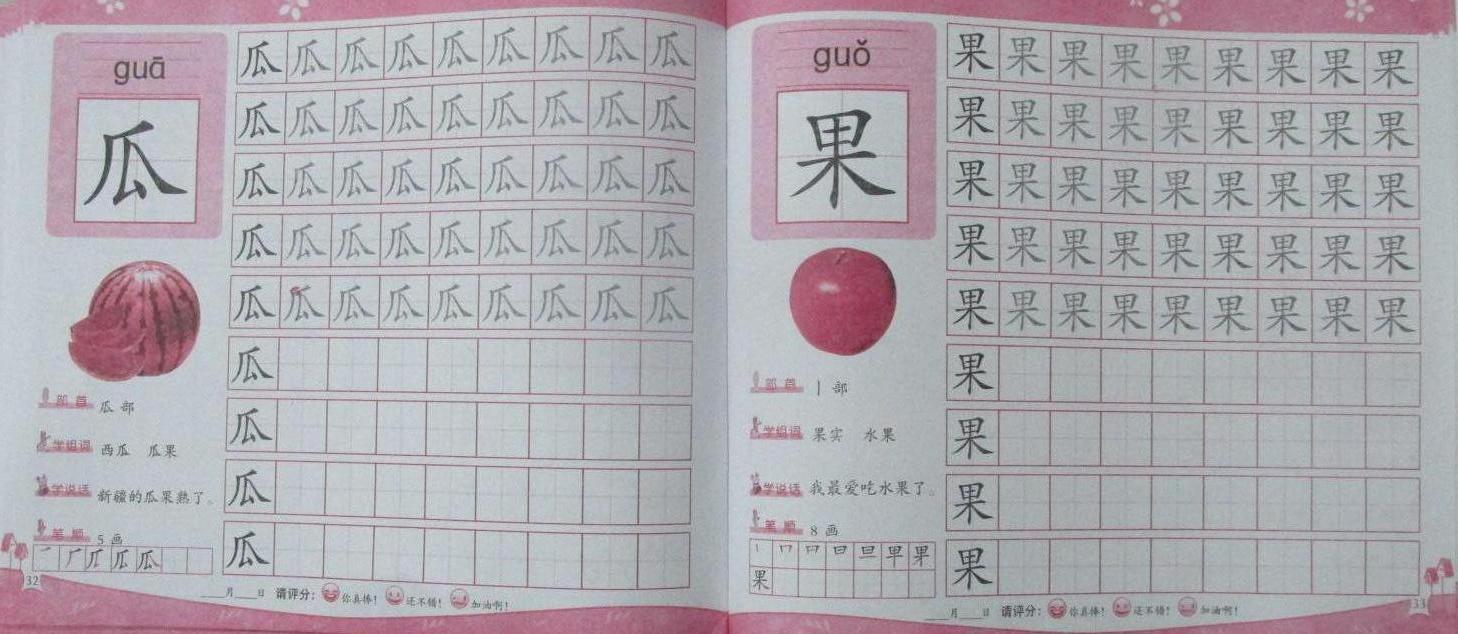 guā
瓜
瓜 瓜 瓜 瓜 瓜 瓜 瓜 瓜 瓜
瓜 瓜 瓜 瓜 瓜 瓜 瓜 瓜 瓜
瓜 瓜 瓜 瓜 瓜 瓜 瓜 瓜 瓜
瓜 瓜 瓜 瓜 瓜 瓜 瓜 瓜 瓜
瓜 瓜 瓜 瓜 瓜 瓜 瓜 瓜 瓜
瓜
瓜
瓜
瓜
部首 瓜部
学组词 西瓜 瓜果
学说话 新疆的瓜果熟了。
笔顺 5画
瓜
32
月 日 请评分: 你真棒! 还不错! 加油啊!
guǒ
果
果 果 果 果 果 果 果 果 果
果 果 果 果 果 果 果 果 果
果 果 果 果 果 果 果 果 果
果 果 果 果 果 果 果 果 果
果 果 果 果 果 果 果 果 果
果
果
果
果
部首 丨部
学组词 果实 水果
学说话 我最爱吃水果了。
笔顺 8画
丨 冂 日 旦 果
果
33
月 日 请评分: 你真棒! 还不错! 加油啊!